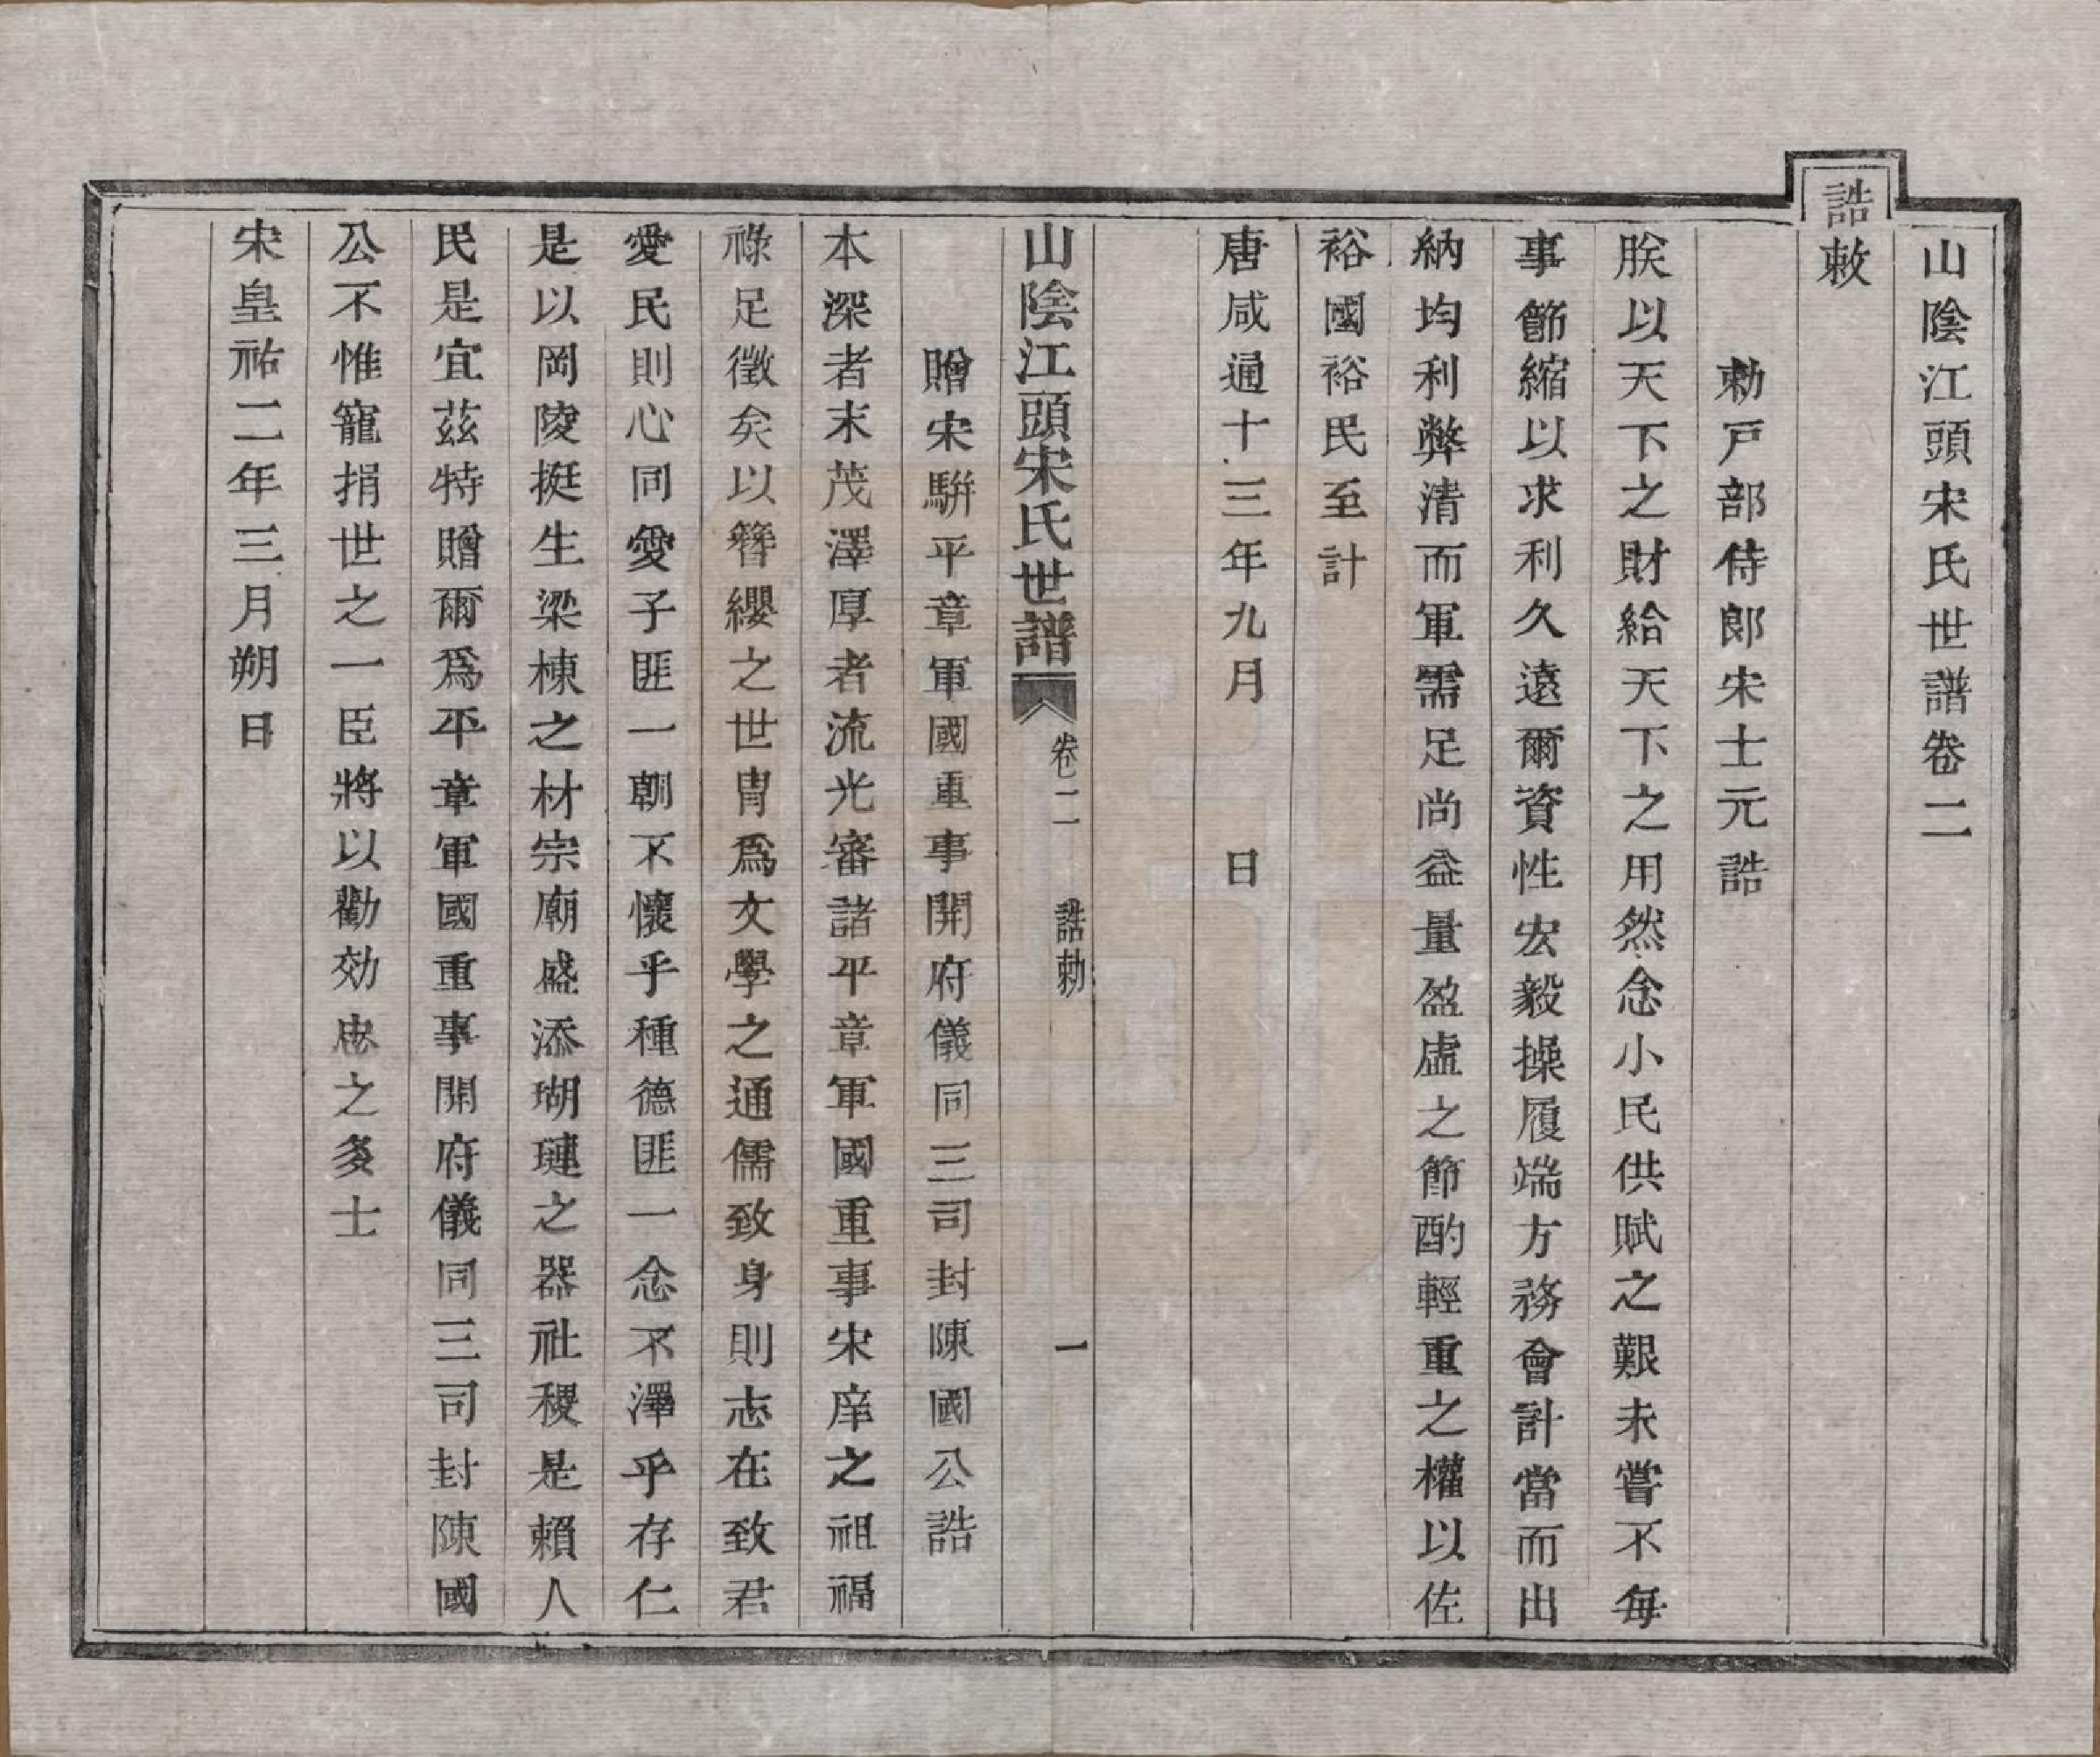 山陰江頭宋氏世譜卷二
誥敕
勅戸部侍郎宋士元誥
朕以天下之財給天下之用然念小民供賦之艱未嘗不每
事節縮以求利久遠爾資性宏毅操履端方務會計當而出
納均利弊清而軍需足尚益量盈虛之節酌輕重之權以佐
裕國裕民至計
唐咸通十三年九月　　日
山陰江頭宋氏世譜　卷二　誥勅　一
贈宋騈平章軍國重事開府儀同三司封陳國公誥
本深者末茂澤厚者流光審諸平章軍國重事宋庠之祖福
祿足徵矣以簪纓之世胄爲文學之通儒致身則志在致君
愛民則心同愛子匪一朝不懷乎種德匪一念不澤乎存仁
是以岡陵挺生梁棟之材宗廟盛添瑚璉之器社稷是賴人
民是宜茲特贈爾爲平章軍國重事開府儀同三司封陳國
公不惟寵捐世之一臣將以勸効忠之多士
宋皇祐二年三月朔日